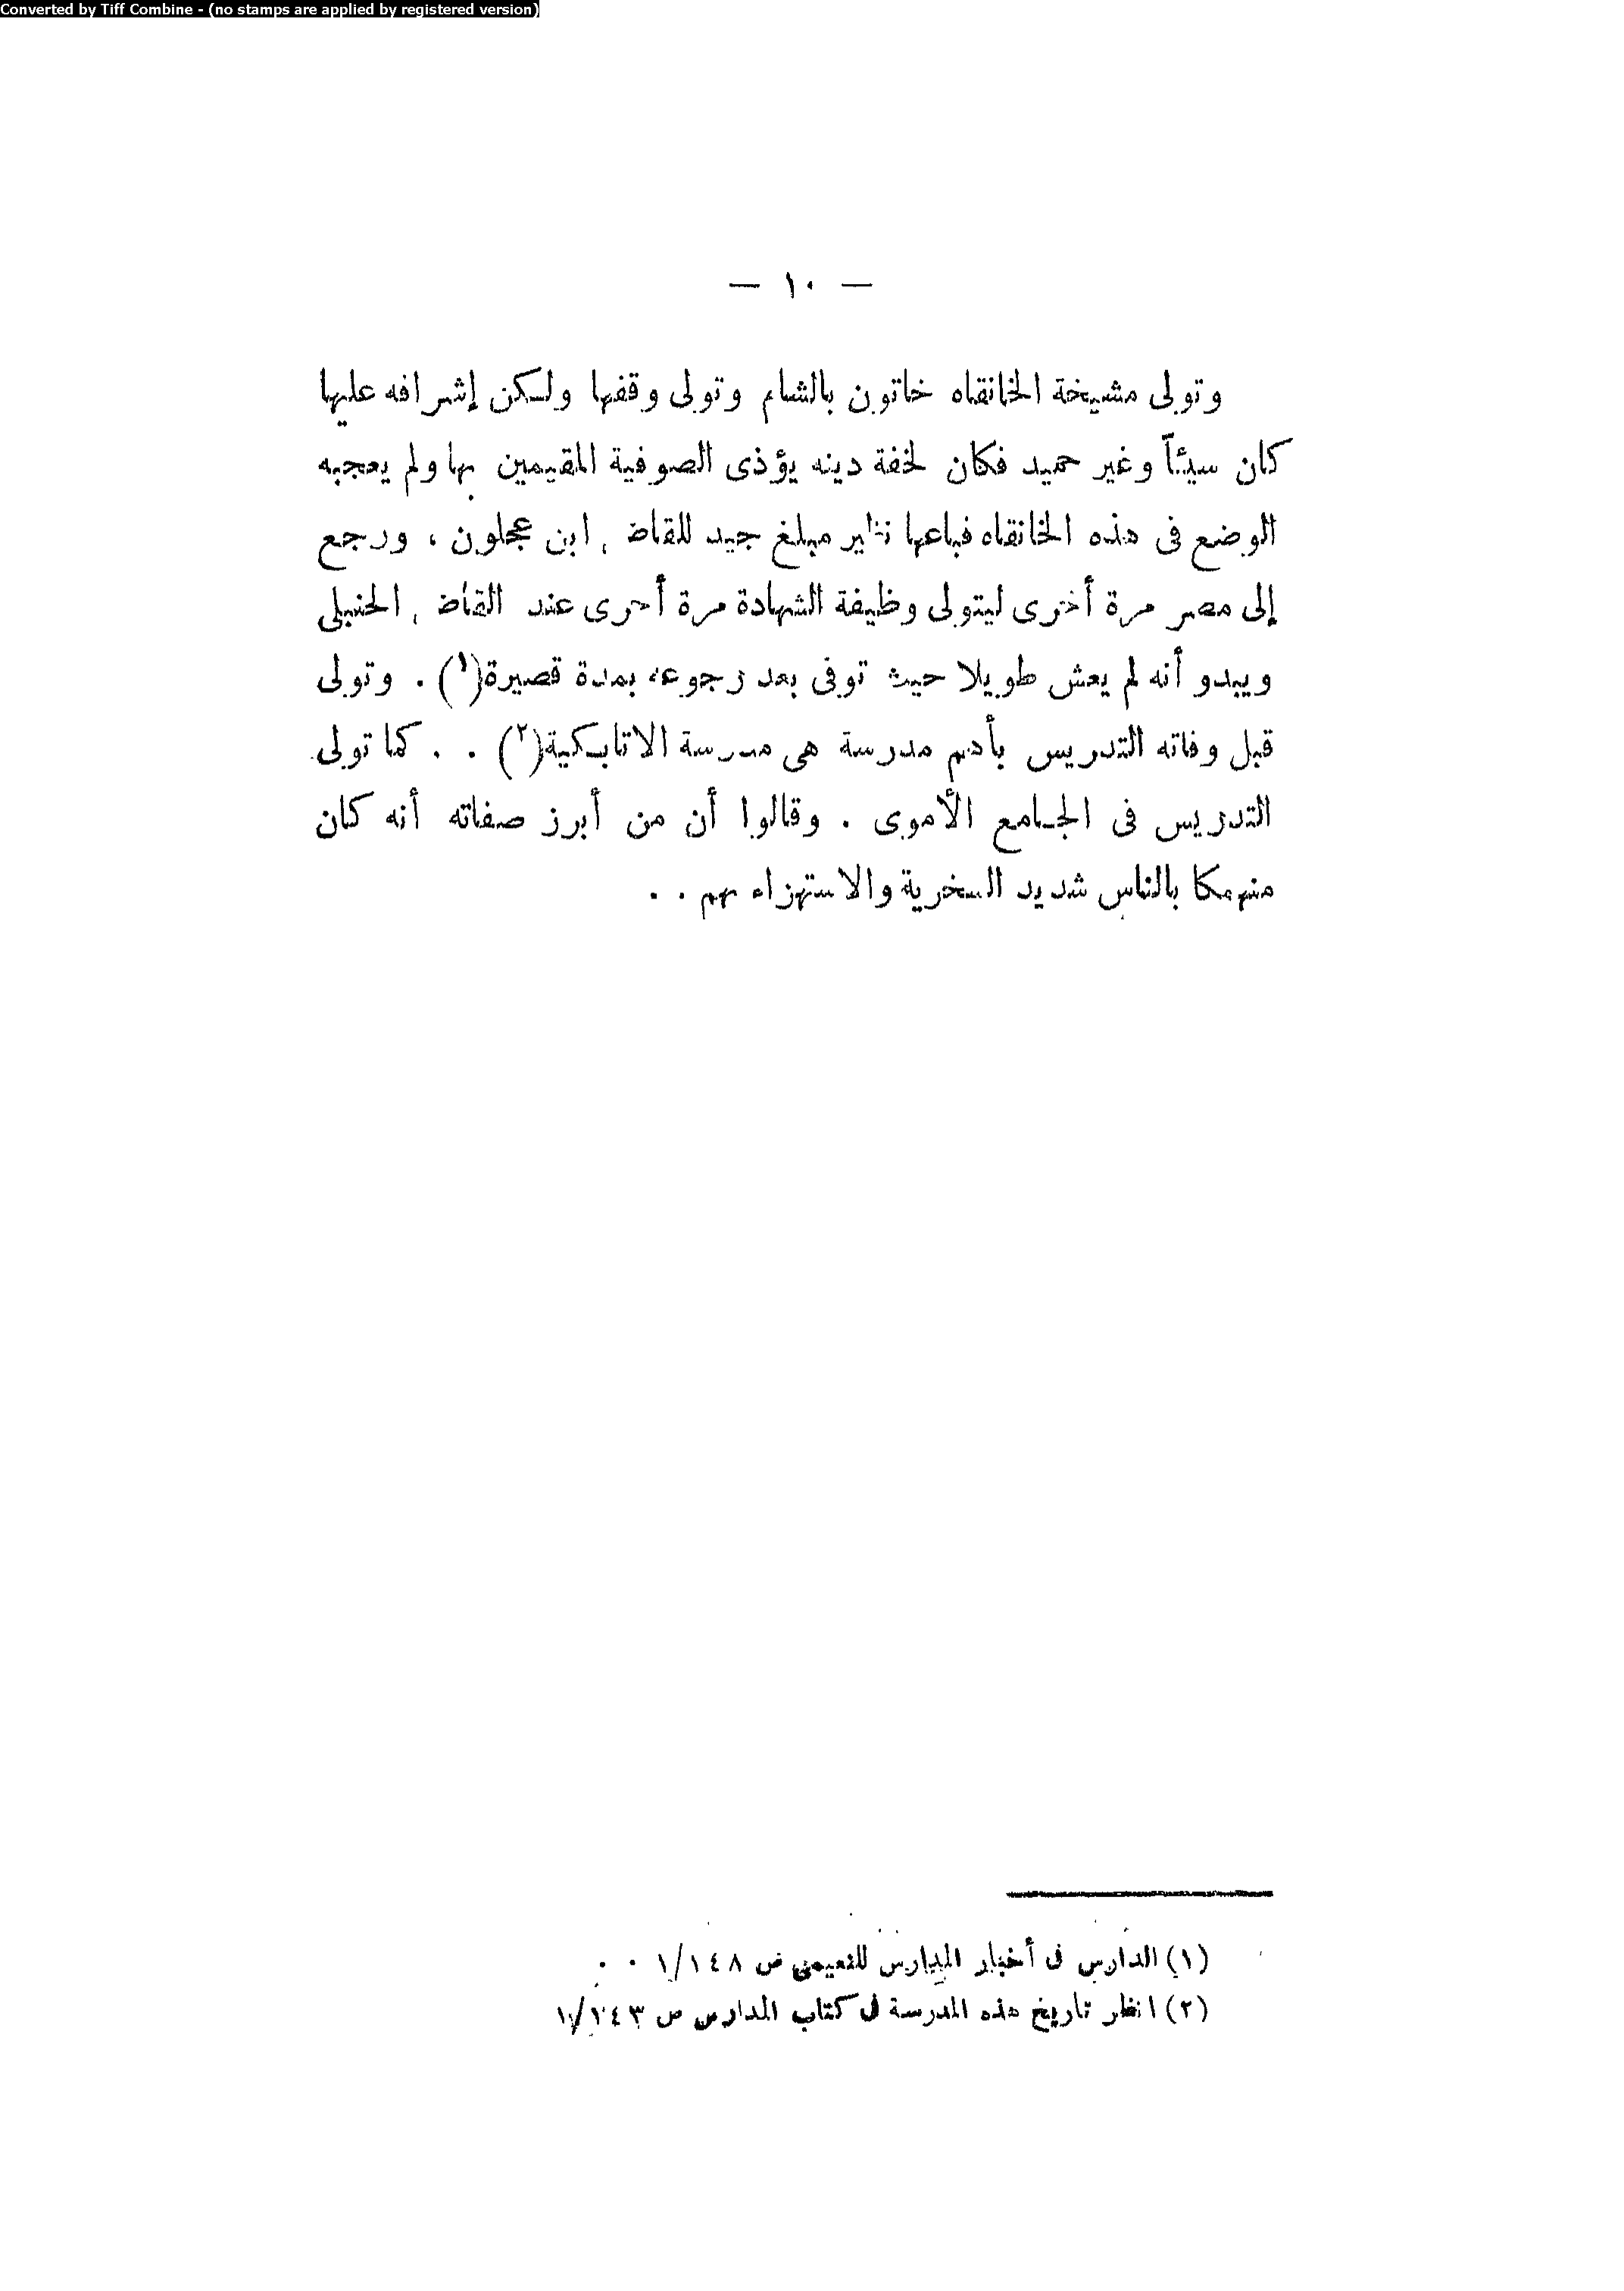 Converted by Tiff Combine - (no stamps are applied by registered version)
— ١٠ —
وتولى مشيخة الخانقاه خاتون بالشام وتولى وقفها ولكن إشرافه عليها
كان سيئاً وغير حميد فكان لخفة دينه يؤذى الصوفية المقيمين بها ولم يعجبه
الوضع فى هذه الخانقاه فباعها نظير مبلغ جيد للقاضى ابن عجلون ، ورجع
إلى مصر مرة أخرى ليتولى وظيفة الشهادة مرة أخرى عند القاضى الحنبلى
ويبدو أنه لم يعش طويلا حيث توفى بعد رجوعه بمدة قصيرة(١) . وتولى
قبل وفاته التدريس بأهم مدرسة هى مدرسة الاتابكية(٢) . . كما تولى
التدريس فى الجامع الأموى . وقالوا أن من أبرز صفاته أنه كان
منهمكا بالناس شديد السخرية والاستهزاء بهم . .
(١) الدارس فى أخبار المدارس للنعيمى ص ١/١٤٨ . .
(٢) انظر تاريخ هذه المدرسة فى كتاب المدارس ص ١/١٤٣